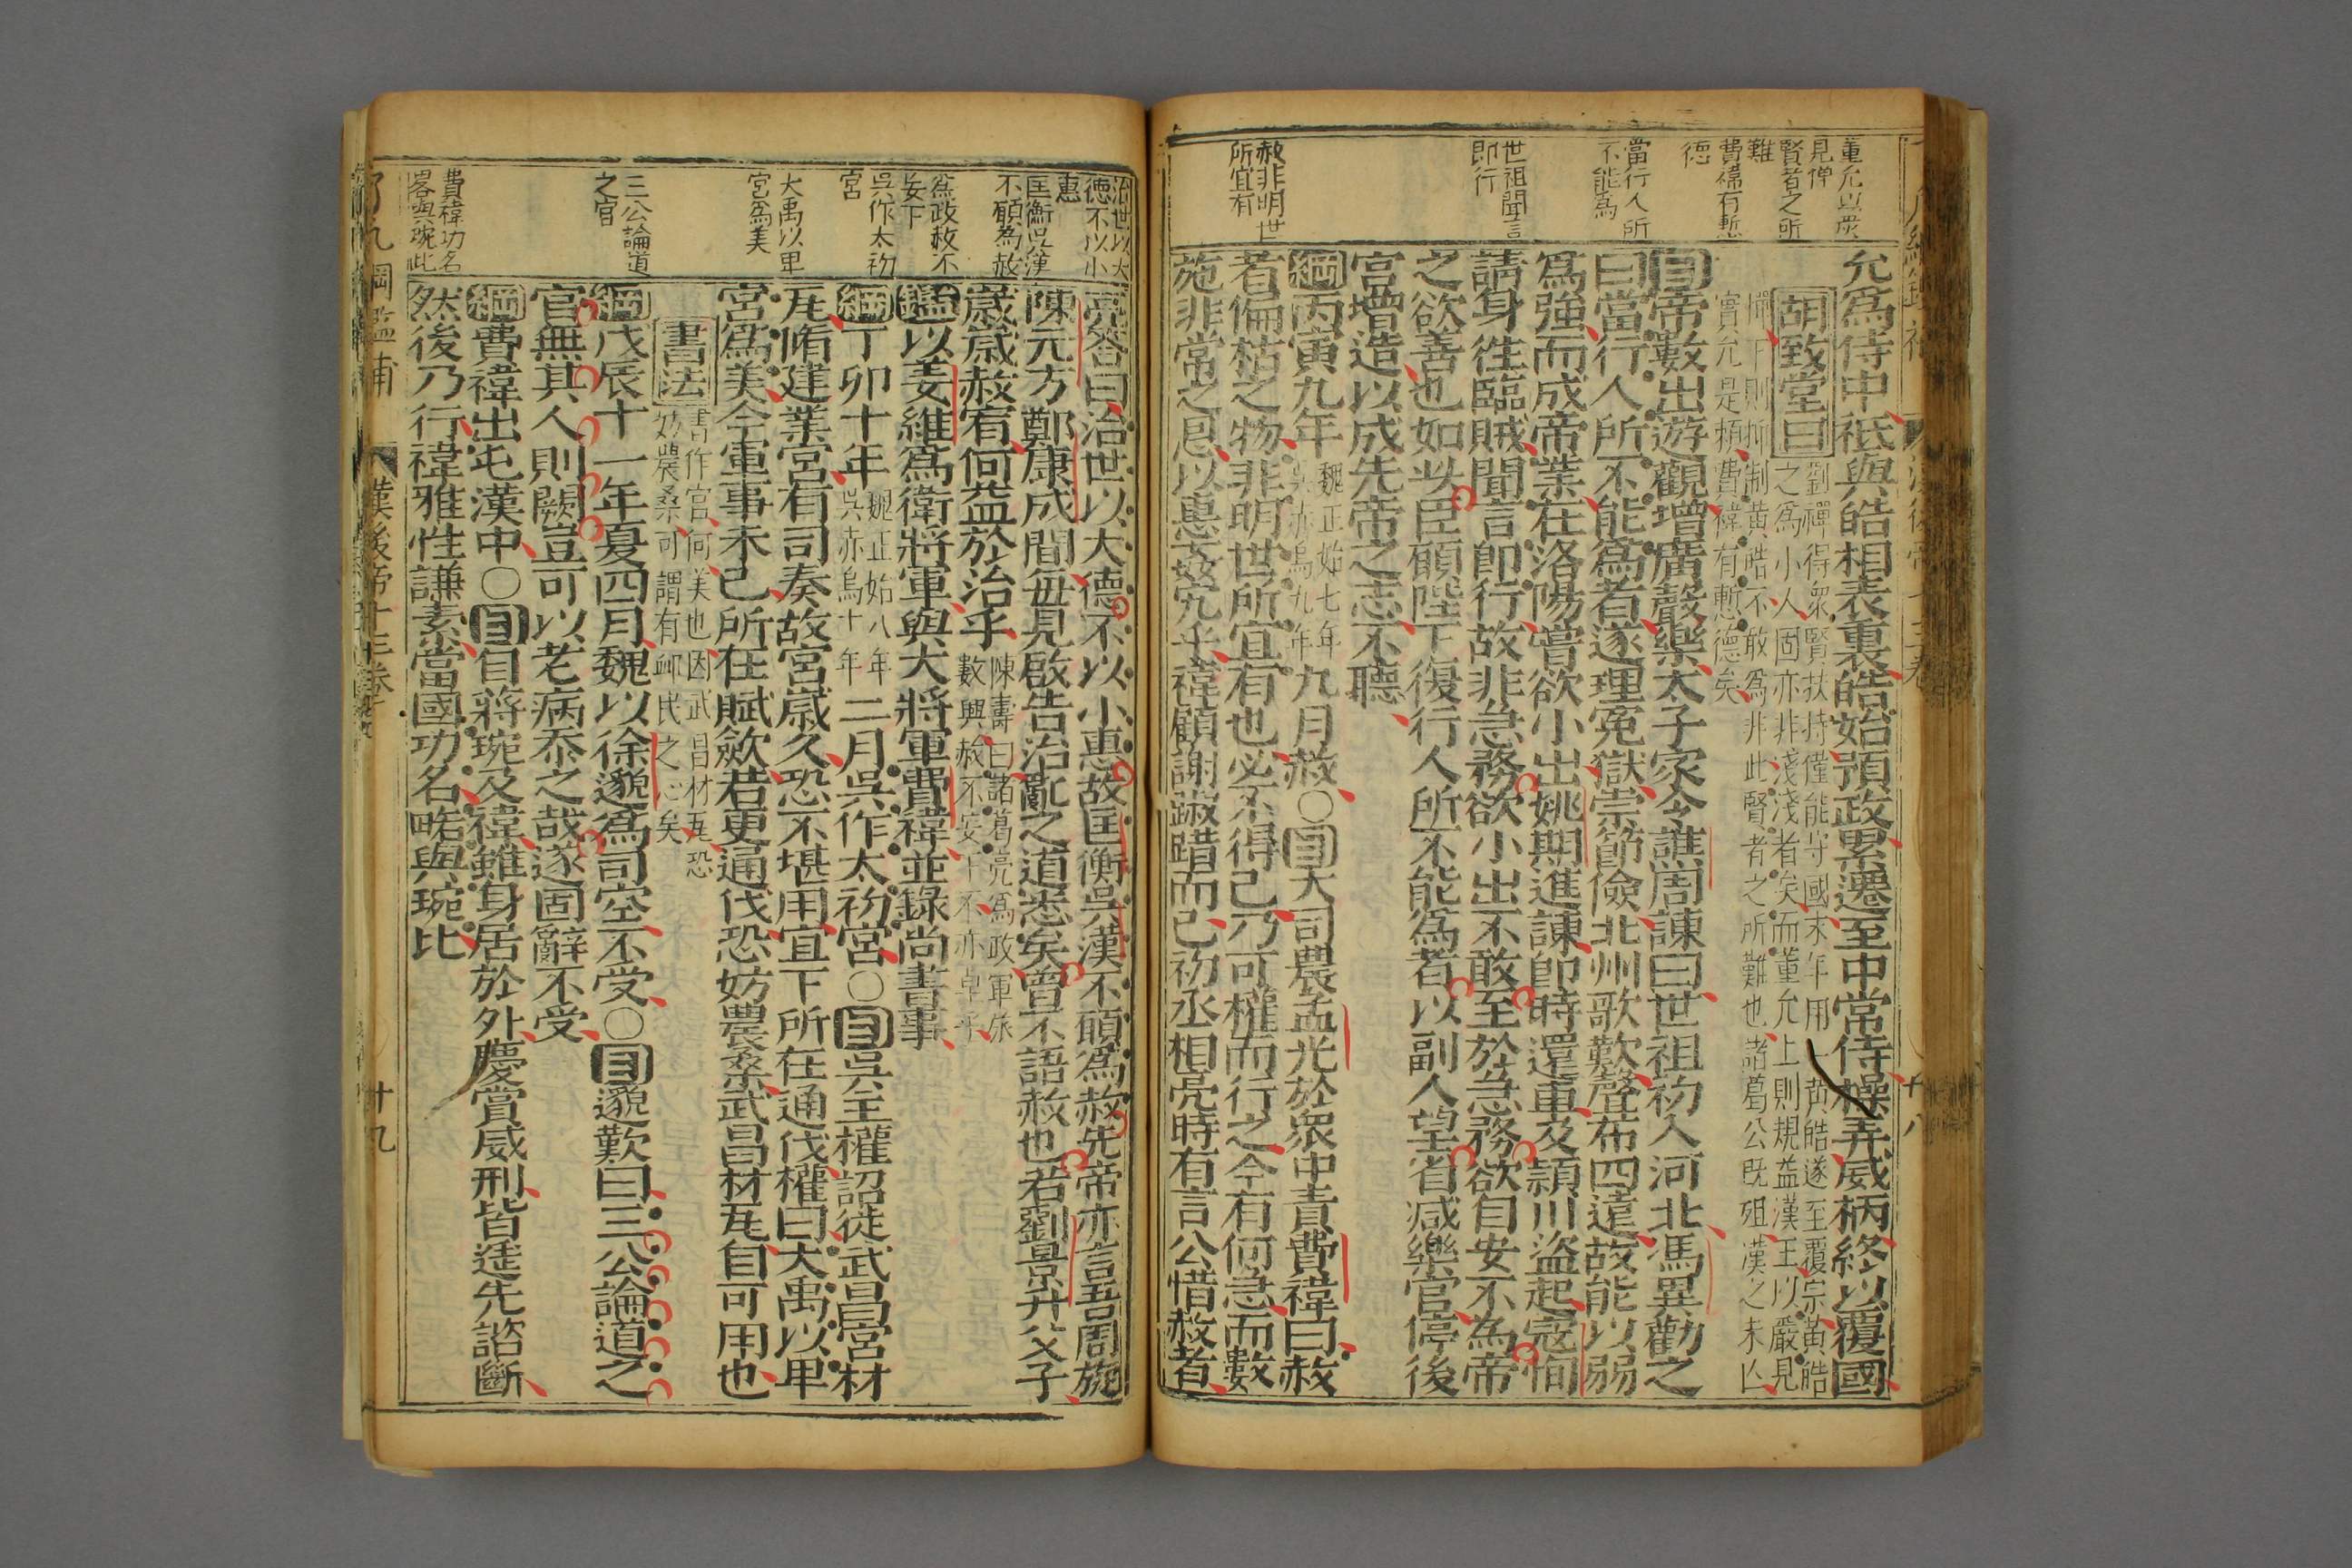 董允以嚴
見憚
賢者之所
難
費禕有慙
德
當行人所
不能為
世祖聞言
即行
赦非明世
所宜有
允為侍中秪與皓相表裏皓始預政累遷至中常侍操弄威柄終以覆國
胡致堂曰
劉禪得衆賢扶持僅能守國末年用一黄皓遂至覆宗黃皓
之為小人固亦非淺淺者矣而董允上則規益漢王以嚴見
憚下則抑制黄皓不敢為非此賢者之所難也諸葛公既殂漢之未亾
實允是賴費禕有慙德矣
目帝數出遊觀增廣聲樂太子家令譙周諫曰世祖初入河北馮異勸之
曰當行人所不能為者遂理寃獄崇節儉北州歌歎聲布四遠故能以弱
為強而成帝業在洛陽嘗欲小出姚期進諫卽時還車及頴川盜起寇恂
請身徃臨賊聞言卽行故非急務欲小出不敢至於急務欲自安不為帝
之欲善也如此臣願陛下復行人所不能為者以副人望省減樂官停後
宮增造以成先帝之志不聽
綱丙寅九年
魏正始七年
吳赤烏九年
九月赦○目大司農孟光於衆中責費禕曰赦
者偏枯之物非明世所宜有也必不得已乃可權而行之今有何急而數
施非常之恩以惠姦宄乎禕顧謝踧踖而已初丞相亮時有言公惜赦者
十八
治世以大
德不以小
惠
匡衡吳漢
不願為赦
為政赦不
妄下
吳作太初
宮
大禹以卑
宮為美
三公論道
之官
費禕功名
畧與琬比
亮答曰治世以大德不以小惠故匡衡吳漢不願為赦先帝亦言吾周旋
陳元方鄭康成間毎見啟告治亂之道悉矣曾不語赦也若劉景升父子
歲歲赦宥何益於治乎
陳壽曰諸葛亮為政軍旅
數興赦不妄下不亦卓乎
鑑以姜維為衛將軍與大將軍費禕並錄尚書事
綱丁卯十年
魏正始八年
吳赤烏十年
二月吳作太初宮○目吳主權詔徙武昌宮材
瓦脩建業宮有司奏故宮歲久恐不堪用宜下所在通伐權曰大禹以卑
宮為美今軍事未已所在賦歛若更通伐恐妨農桑武昌材瓦自可用也
書法
書作宮何美也因武昌材瓦恐
妨農桑可謂有邺民之心矣
綱戊辰十一年夏四月魏以徐邈為司空不受○目邈歎曰三公論道之
官無其人則闕豈可以老病忝之哉遂固辭不受
綱費禕出屯漢中○目自蔣琬及禕雖身居於外慶賞威刑皆遥先諮斷
然後乃行禕雅性謙素當國功名略與琬比
綱鑑補
漢後帝十三卷
十九